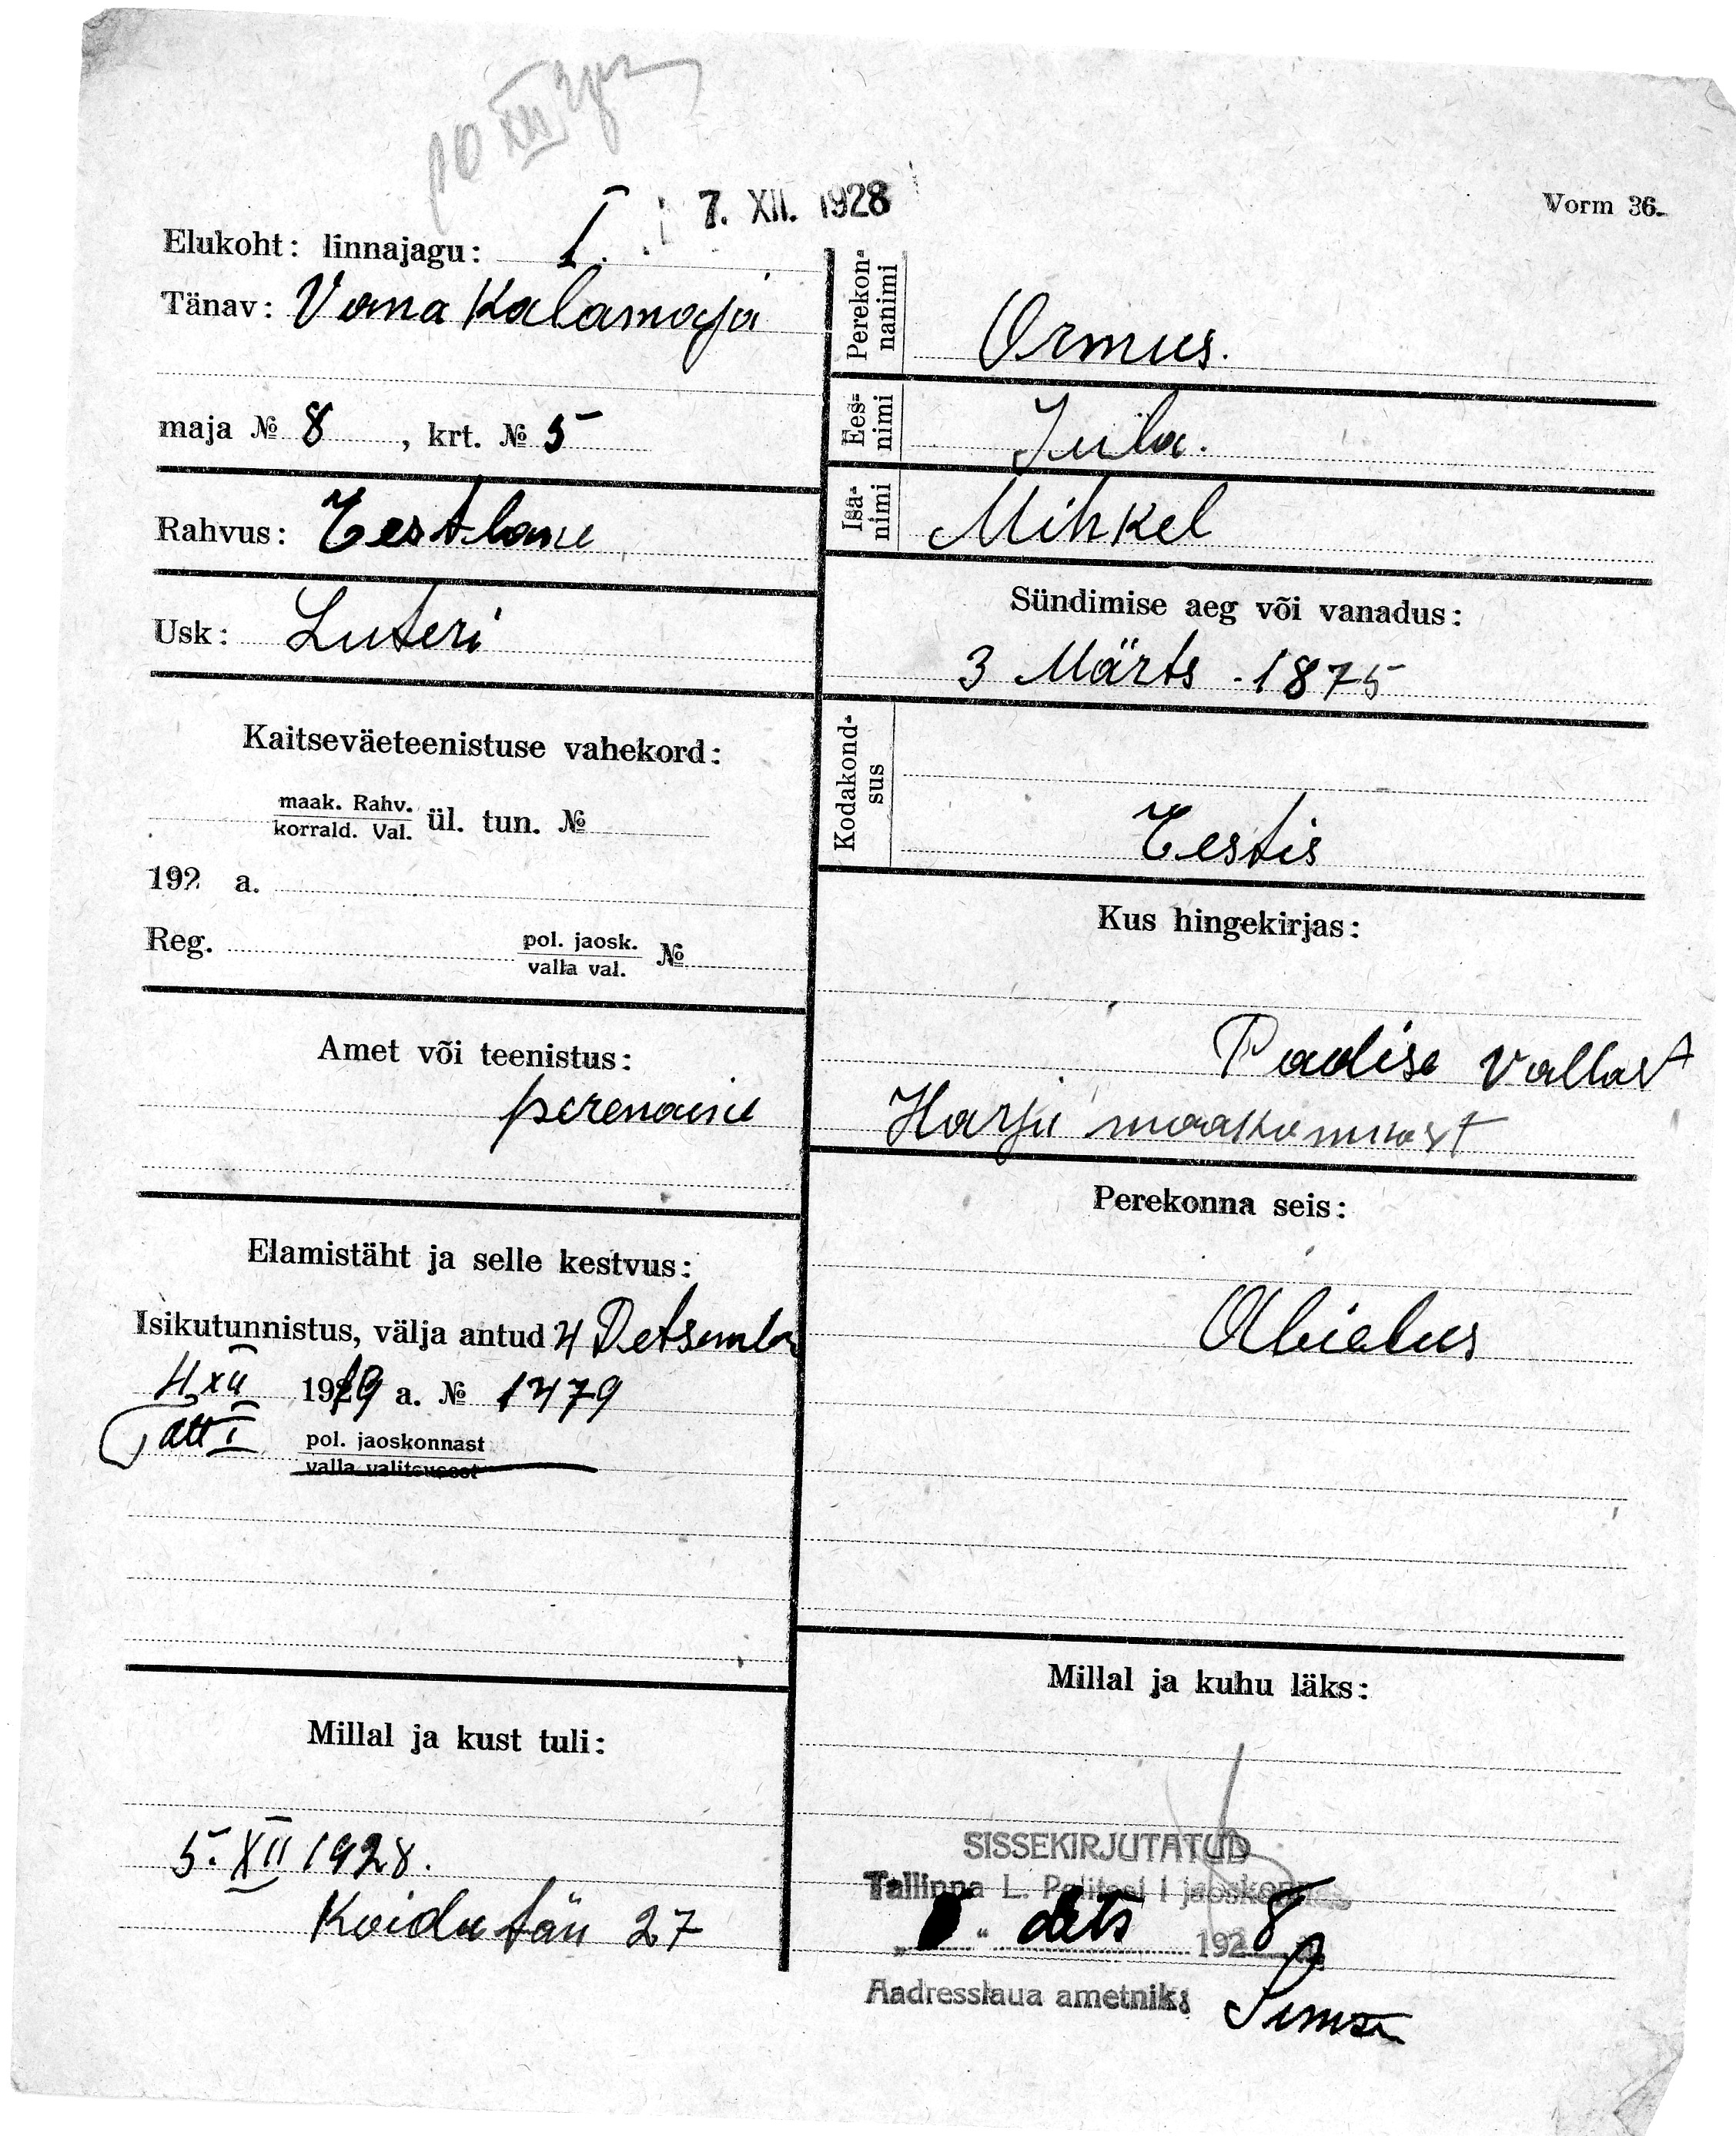 10 XII
7. XII. 1928
Vorm 36.
Elukoht: linnajagu: I.
Tänav: Vana Kalamaja
maja № 8 , krt. № 5
Rahvus: Eestlane
Usk: Luteri
Kaitseväeteenistuse vahekord:
maak. Rahv.
korrald. Val. ül. tun. №
192 a.
Reg. pol. jaosk.
valla val. №
Amet või teenistus:
perenaine
Elamistäht ja selle kestvus:
Isikutunnistus, välja antud 4 Detsembr
4 XII 1919 a. № 1479
I pol. jaoskonnast
valla valitsusest
Millal ja kust tuli:
5. XII 1928.
Koidu tän 27
Perekon-
nanimi Ormus.
Ees-
nimi Jula.
Isa-
nimi Mihkel
Sündimise aeg või vanadus:
3 Märts. 1875
Kodakond-
sus
Eestis
Kus hingekirjas:
Padise Vallast
Harju maakonnast
Perekonna seis:
Abielus
Millal ja kuhu läks:
SISSEKIRJUTATUD
Tallinna L. Politsei I jaoskonnas
" " dets 1928
Aadresslaua ametnik: